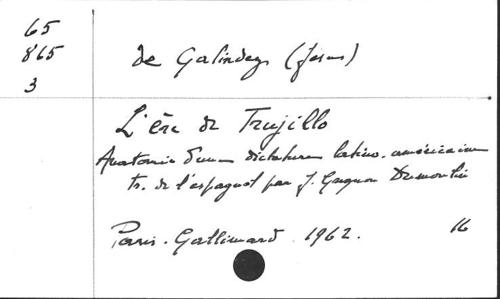 65
865
3
de Galindez (Jesus)
L'ère de Trujillo
Anatomie d'une dictature latino-américaine
tr. de l'espagnol par J. Gagnon Dumoulin
Paris. Gallimard. 1962. 16